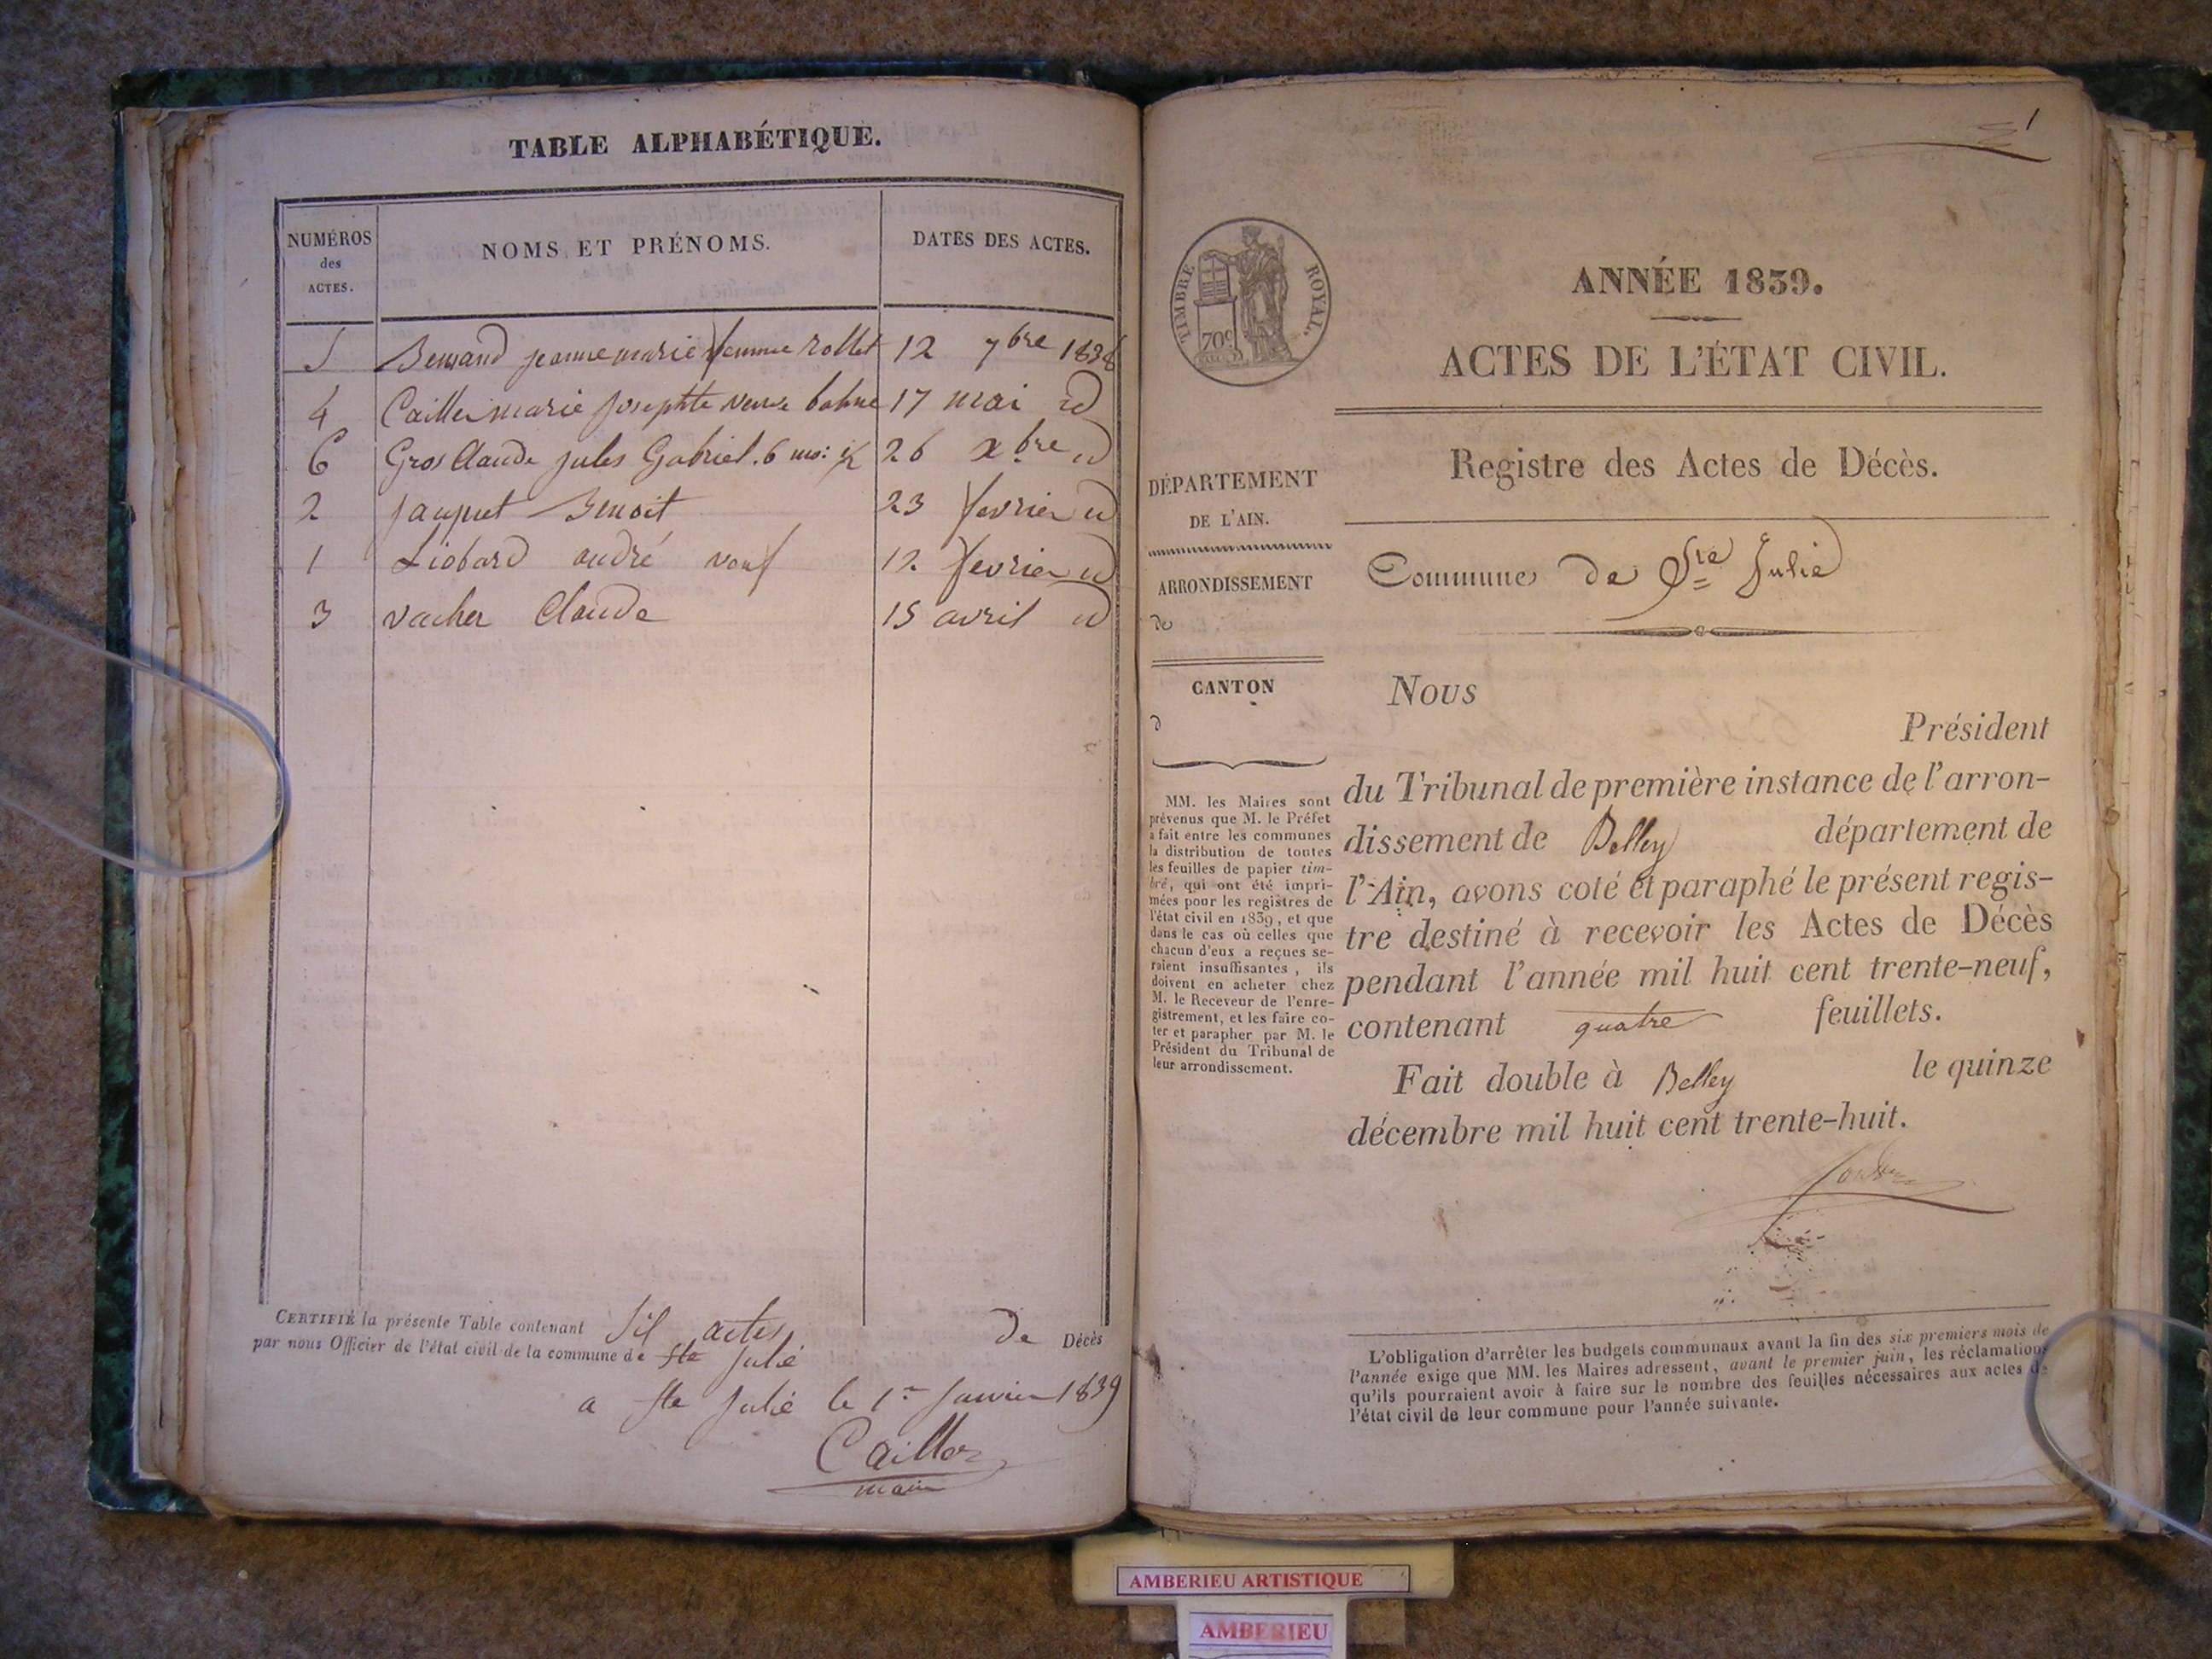 TABLE ALPHABÉTIQUE.
NUMÉROS
des
ACTES.
NOMS ET PRÉNOMS.
DATES DES ACTES.
5 jeanne marie femme rollet 12 7bre 1838
4 marie Josephte veuve 17 mai id
6 Gros Claude jules Gabriel. 6 26 xbre id
2 Benoit 23 fevrier id
1 Liobard andré veuf 12 fevrier id
3 vacher Claude 15 avril id
CERTIFIÉ la présente Table contenant actes de Décès
par nous Officier de l'état civil de la commune de Ste Julie
a Ste Julie le 1er Janvier 1839
Caillor
maire
1
TIMBRE ROYAL.
70c
DÉPARTEMENT
DE L'AIN.
ARRONDISSEMENT
de
CANTON
d
MM. les Maires sont
prévenus que M. le Préfet
a fait entre les communes
la distribution de toutes
les feuilles de papier tim-
bré, qui ont été impri-
mées pour les registres de
l'état civil en 1839, et que
dans le cas où celles que
chacun d'eux a reçues se-
raient insuffisantes, ils
doivent en acheter chez
M. le Receveur de l'enre-
gistrement, et les faire co-
ter et parapher par M. le
Président du Tribunal de
leur arrondissement.
ANNÉE 1839.
ACTES DE L'ÉTAT CIVIL.
Registre des Actes de Décès.
Commune de Ste Julie
Nous
Président
du Tribunal de première instance de l'arron-
dissement de Belley département de
l'Ain, avons coté et paraphé le présent regis-
tre destiné à recevoir les Actes de Décès
pendant l'année mil huit cent trente-neuf,
contenant quatre feuillets.
Fait double à Belley le quinze
décembre mil huit cent trente-huit.
L'obligation d'arrêter les budgets communaux avant la fin des six premiers mois de
l'année exige que MM. les Maires adressent, avant le premier juin, les réclamations
qu'ils pourraient avoir à faire sur le nombre des feuilles nécessaires aux actes de
l'état civil de leur commune pour l'année suivante.
AMBERIEU ARTISTIQUE
AMBERIEU